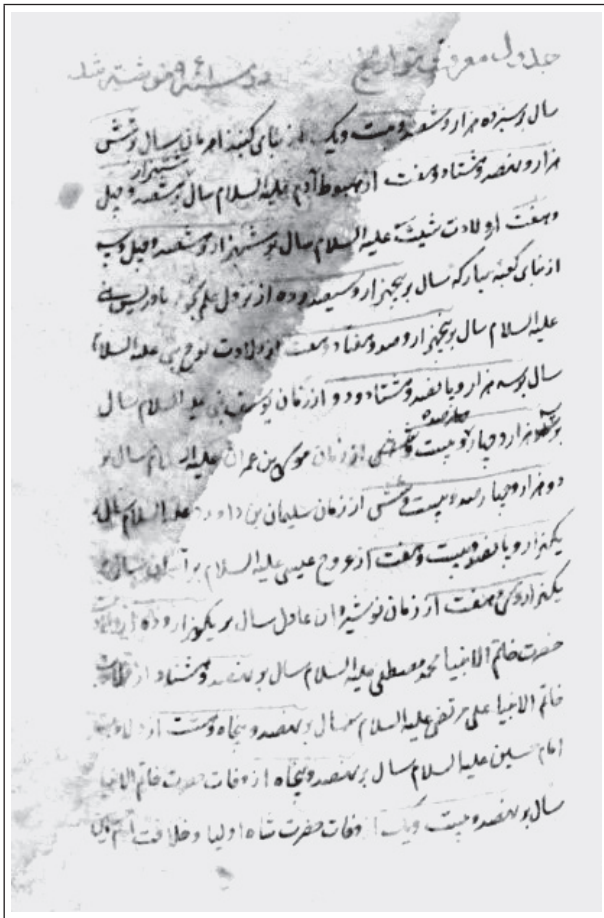 جدول معرفتی تواریخ در سنه ۹ نوشته شد
سال بر سیزده هزار و ششصد و بیست و یک از بنای گنبذ اهرمان سال بر شش
هزار و نهصد و هشتاد و هفت از هبوط آدم علیه السلام سال بر ششهزار ششصد و چهل
و هفت از ولادت شیث علیه السلام سال بر ششهزار و ششصد و چهل و سه
از بنای کعبه مبارکه سال بر پنجهزار و سیصد و ده از نزول علم نجوم بادریس نبی
علیه السلام سال بر پنجهزار و صد و هفتاد و هفت از ولادت نوح نبی علیه السلام
سال بر سه هزار و پانصد و هشتاد و دو از زمان یوسف نبی علیه السلام سال
بر هزار و چهار صد و بیست و از زمان موسی بن عمران علیه السلام سال بر
دو هزار و چهار صد و بیست و شش از زمان سلیمان بن داود علیه السلام سال
یکهزار و پانصد و بیست و هفت از عروج عیسی علیه السلام بر آسمان سال بر
یکهزار و سی و هفت از زمان نوشیروان عادل سال بر یکهزار و ده از ولادت
حضرت خاتم الانبیا محمد مصطفی علیه السلام سال بر نهصد و هشتاد و از
خاتم الانبیا علی مرتضی علیه السلام سال بر نهصد و پنجاه و هشت از ولادت
امام حسین علیه السلام سال بر نهصد و پنجاه از وفات حضرت خاتم الانبیا
سال بر نهصد و بیست و یک از وفات حضرت شاه اولیا و خلافت